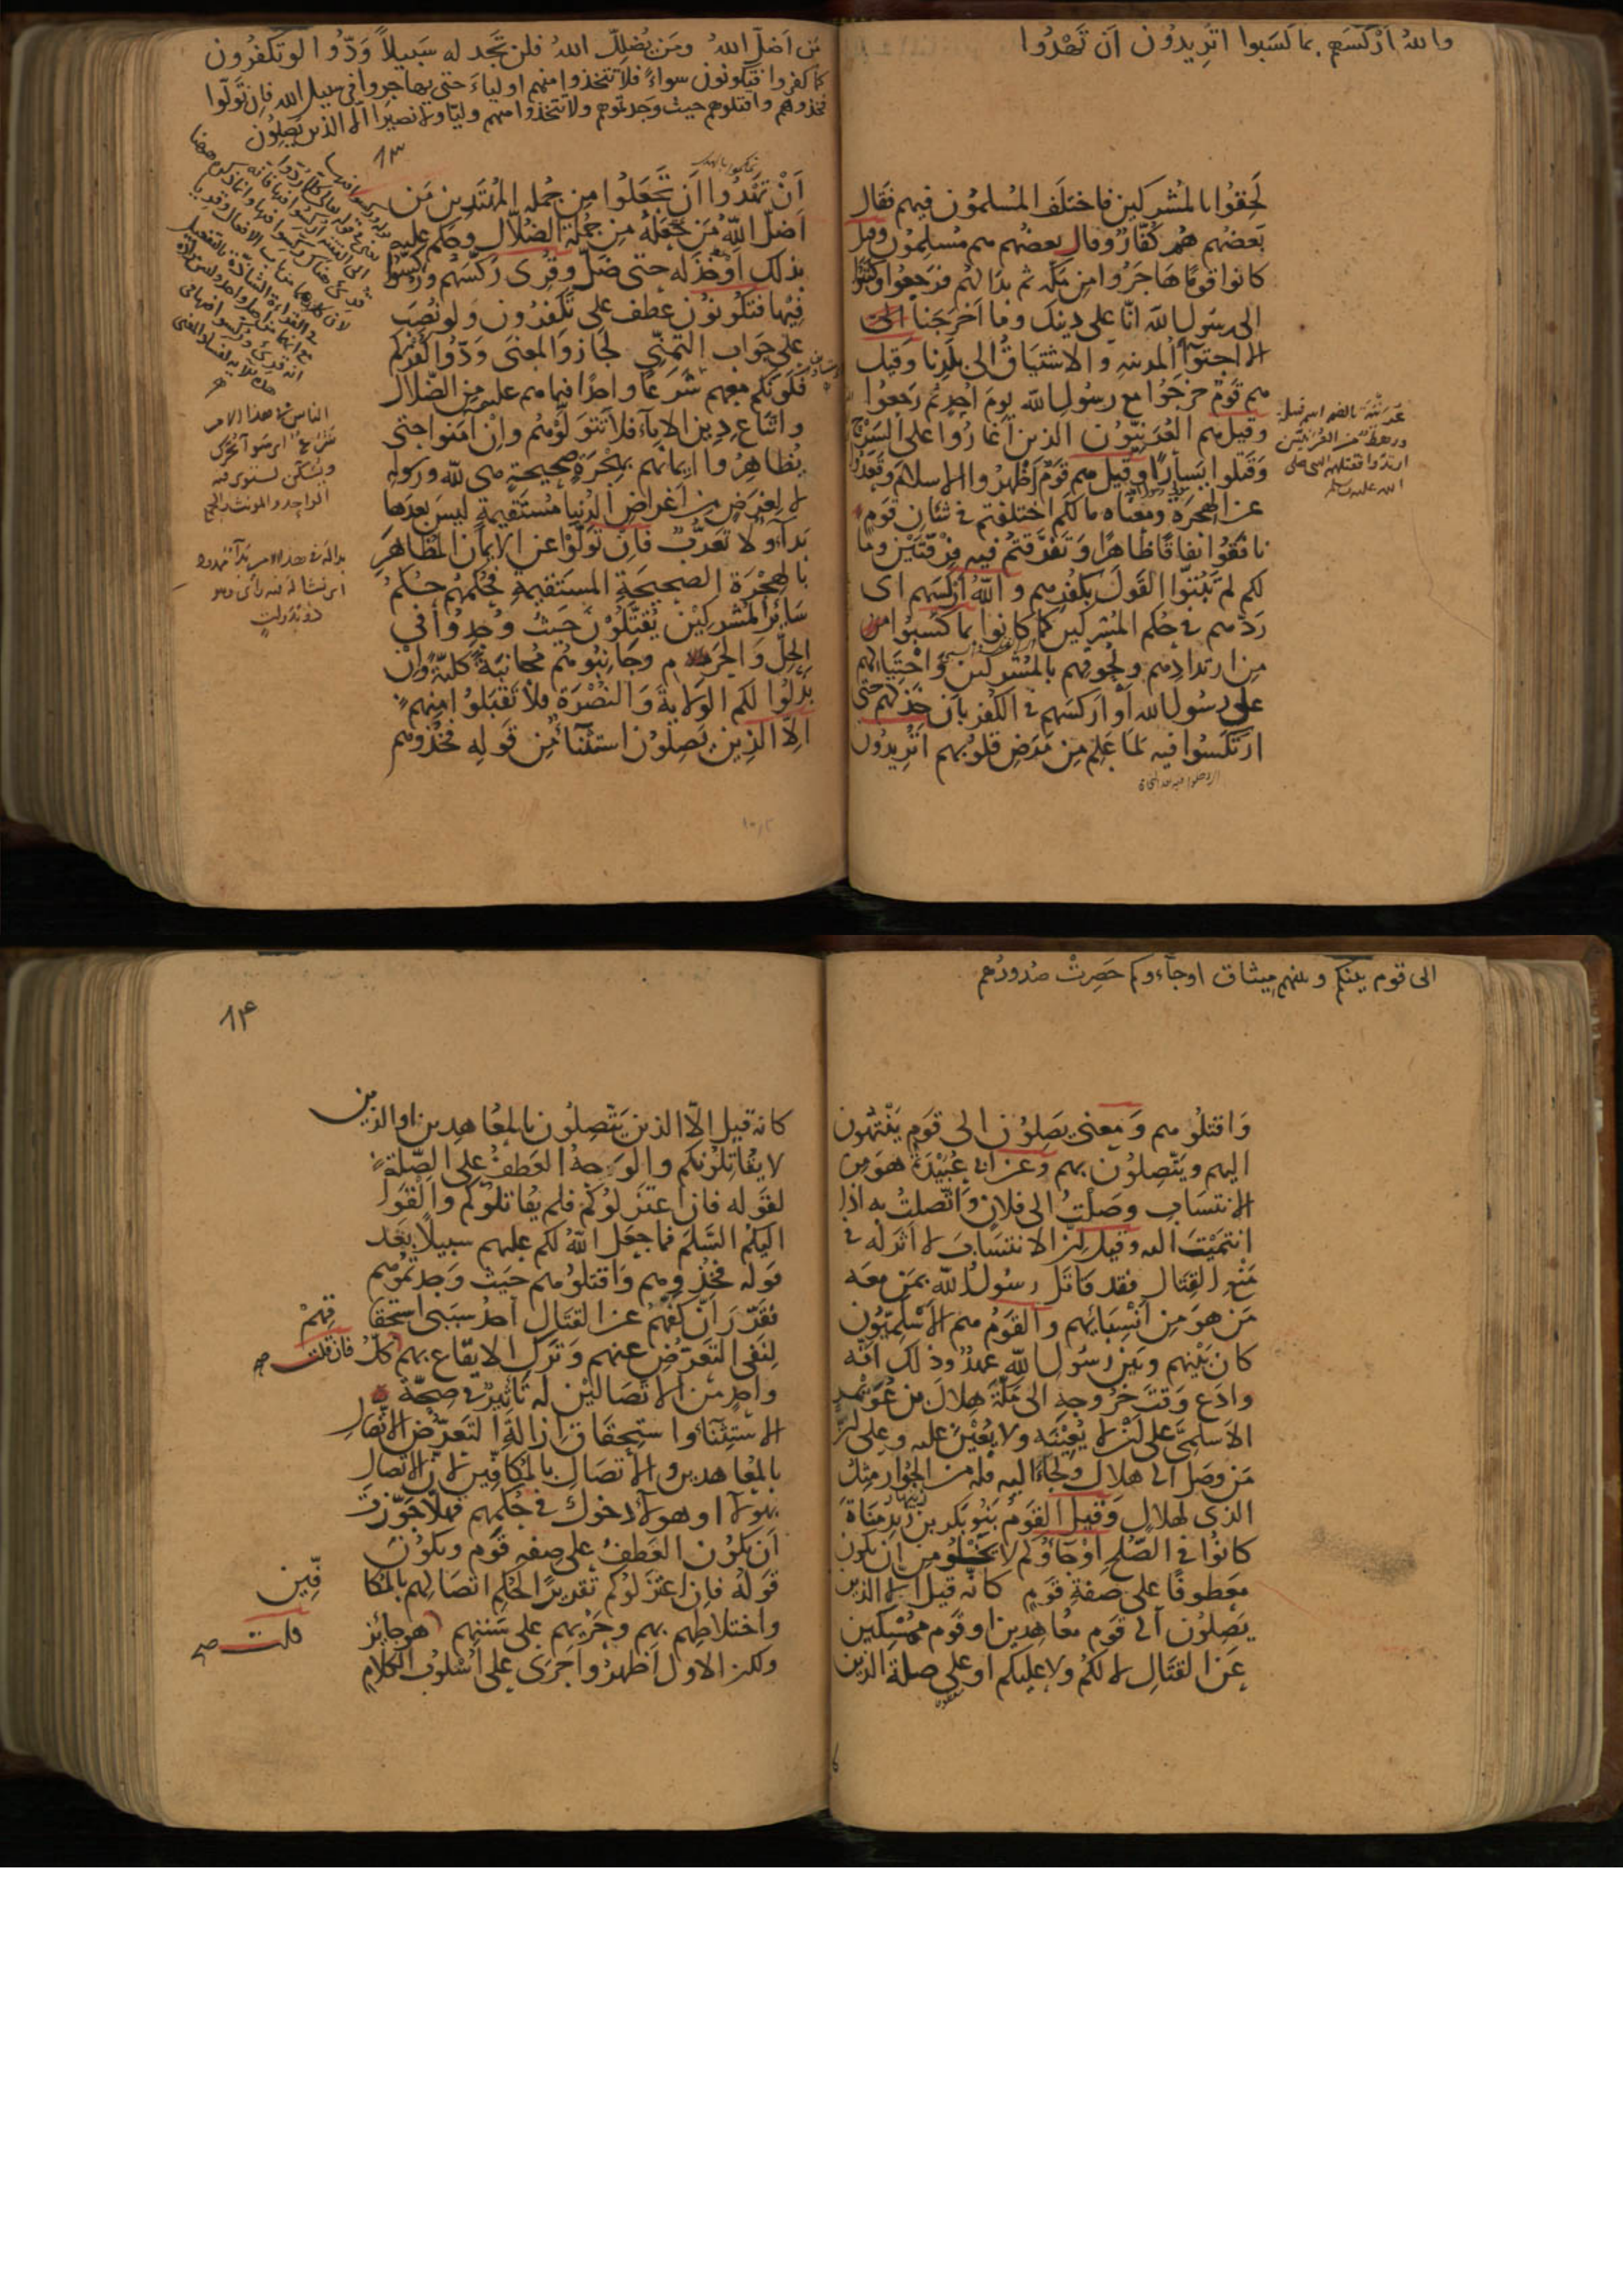 والله اركسهم بما كسبوا اتريدون ان تهدوا
لحقوا بالمشركين فاختلف المسلمون فيهم فقال
بعضهم هم كفار وقال بعضهم هم مسلمون وقيل
كانوا قوما هاجروا من مكة ثم بدا لهم فرجعوا وكتبوا
الى رسول الله انا على دينك وما اخرجنا
الا اجتواء المدينة والاشتياق الى بلدنا وقيل
هم قوم خرجوا مع رسول الله يوم احد ثم رجعوا
وقيل هم العرنيون الذين اغاروا على السرح
وقتلوا يسارا وقيل هم قوم اظهروا الاسلام وقعدوا
عن الهجرة ومعناه ما لكم اختلفتم في شان قوم
نافقوا نفاقا ظاهرا وتفرقتم فيه فرقتين وما
لكم لم تبتوا القول بكفرهم والله اركسهم اى
ردهم في حكم المشركين كما كانوا بما كسبوا
من ارتدادهم ولحوقهم بالمشركين واحتيالهم
على رسول الله او اركسهم في الكفر بان خذلهم حتى
ارتكسوا فيه لما علم من مرض قلوبهم اتريدون
عرينة بالضم اسم قبيلة
ورهط من العرنيين
ارتدوا فقتلهم النبي صلى
الله عليه وسلم
من اضل الله ومن يضلل الله فلن تجد له سبيلا ودوا لو تكفرون
كما كفروا فتكونون سواء فلا تتخذوا منهم اولياء حتى يهاجروا في سبيل الله فان تولوا
فخذوهم واقتلوهم حيث وجدتموهم ولا تتخذوا منهم وليا ولا نصيرا الا الذين يصلون
٨٣
ان تهتدوا ان تجعلوا من جملة المهتدين من
اضل الله من جعله من جملة الضلال وحكم عليه
بذلك او خذله حتى ضل وقرى ركسهم وركسوا
فيها فتكونون عطف على تكفرون ولو نصب
على جواب التمني لجاز والمعنى ودوا كفركم
فكونكم معهم شرعا واحدا فيما هم عليه من الضلال
واتباع دين الاباء فلا تتولوهم وان آمنوا حتى
يظاهروا ايمانهم بهجرة صحيحة هي لله ورسوله
لا لغرض من اغراض الدنيا مستقيمة ليس بعدها
بداء ولا تعرب فان تولوا عن الايمان المظاهر
بالهجرة الصحيحة المستقيمة فحكمهم حكم
سائر المشركين يقتلون حيث وجدوا في
الحل والحرم وجانبوهم مجانبة كلية وان
بذلوا لكم الولاية والنصرة فلا تقبلوا منهم
الا الذين يصلون استثناء من قوله فخذوهم
الناس في هذا الامر
شرع اى سواء يحرك
ويسكن يستوى فيه
الواحد والمونث والجمع
بدا له في هذا الامر بداء ممدود
اى نشا له فيه راى وهو
ذو بدوات
الى قوم بينكم وبينهم ميثاق او جاءوكم حصرت صدورهم
واقتلوهم ومعنى يصلون الى قوم ينتهون
اليهم ويتصلون بهم وعن ابي عبيدة هو من
الانتساب وصلت الى فلان واتصلت به اذا
انتميت اليه وقيل ان الانتساب لا اثر له في
منع القتال فقد قاتل رسول الله بمن معه
من هو من انسبائهم والقوم هم الاسلميون
كان بينهم وبين رسول الله عهد وذلك انه
وادع وقت خروجه الى مكة هلال بن عويمر
الاسلمي على ان لا يعينه ولا يعين عليه وعلى ان
من وصل الى هلال ولجا اليه فله من الجوار مثل
الذى لهلال وقيل القوم بنو بكر بن زيد مناة
كانوا في الصلح او جاؤكم لا يخلو من ان يكون
معطوفا على صفة قوم كانه قيل الا الذين
يصلون الى قوم معاهدين او قوم ممسكين
عن القتال لا لكم ولا عليكم او على صلة الذين
٨٤
كانه قيل الا الذين يتصلون بالمعاهدين او الذين
لا يقاتلونكم والوجه العطف على الصلة
لقوله فان اعتزلوكم فلم يقاتلوكم والقوا
اليكم السلم فما جعل الله لكم عليهم سبيلا بعد
قوله فخذوهم واقتلوهم حيث وجدتموهم
فقرر ان كفهم عن القتال احد سببي استحقاقهم
لنفى التعرض عنهم وترك الايقاع بهم فان قلت كل
واحد من الاتصالين له تاثير في صحة
الاستثناء واستحقاق ازالة التعرض الاتصال
بالمعاهدين والاتصال بالمكافين لان الاتصال
بهولاء او هولاء دخول في حكمهم فهلا جوزت
ان يكون العطف على صفة قوم ويكون
قوله فان اعتزلوكم تقريرا لحكم اتصالهم بالمكافين
واختلاطهم بهم وجريهم على سننهم قلت هو جائز
ولكن الاول اظهر واجرى على اسلوب الكلام